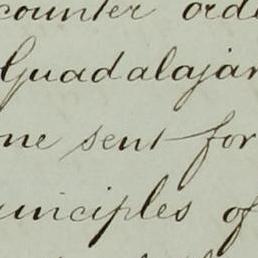 counter ord
Guadalajar
ne sent for
inciples of